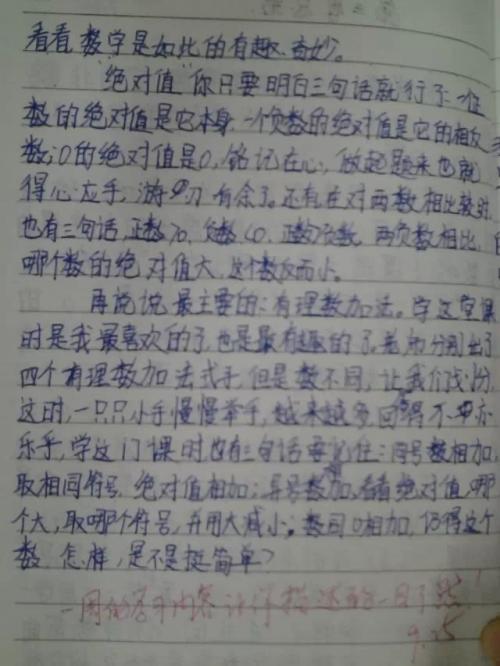 看看数字是如此的有趣、奇妙。
绝对值你只要明白三句话就行了:一个正
数的绝对值是它本身,一个负数的绝对值是它的相反
数;0的绝对值是0,铭记在心,做起题来也就
得心应手,游刃有余了。还有在对两数相比较时,
也有三句话,正数>0,负数<0,正数>负数,两负数相比,
哪个数的绝对值大,这个数反而小。
再说说最主要的:有理数加法。学这堂课
时是我最喜欢的了,也是最有趣的了,老师分别出了
四个有理数加法式子,但是数不同,让我们找
这时,一只只小手慢慢举手,越来越多,回答得不亦
乐乎,学这门课时也有三句话要记住:同号数相加,
取相同符号,绝对值相加;异号数加,看看绝对值,哪
个大,取哪个符号,并用大减小。数同0相加,仍得这个
数,怎样,是不是挺简单?
一周的学习内容让你描述的一目了然!
9.25